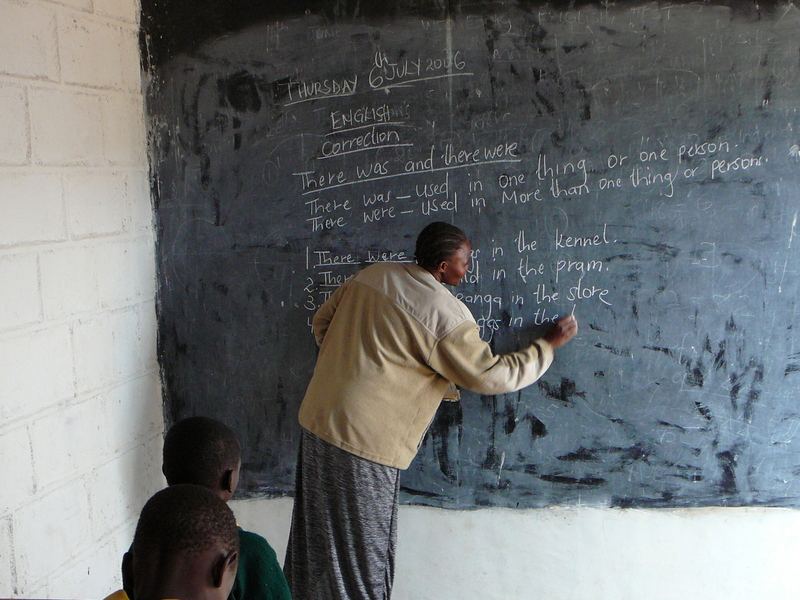 THURSDAY 6th JULY 2006
ENGLISH
Correction
There was and there were
There was - used in one thing or one person.
There were - used in More than one thing or persons.
1 There were in the kennel.
2. There in the pram.
3. in the store
4 in the